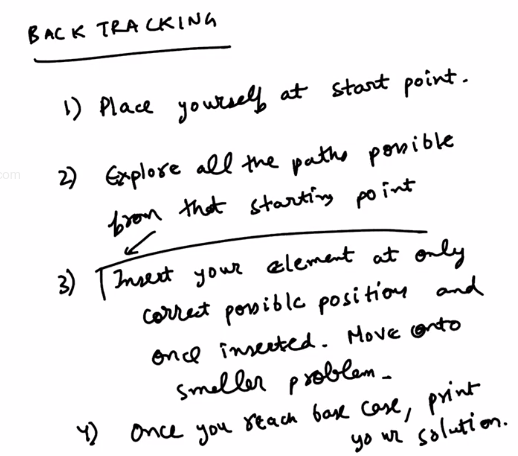 BACK TRACKING
1) Place yourself at start point.
2) Explore all the paths possible
from that starting point
3) Insert your element at only
correct possible position and
once inserted. Move onto
smaller problem.
4) Once you reach base case, print
your solution.
.com